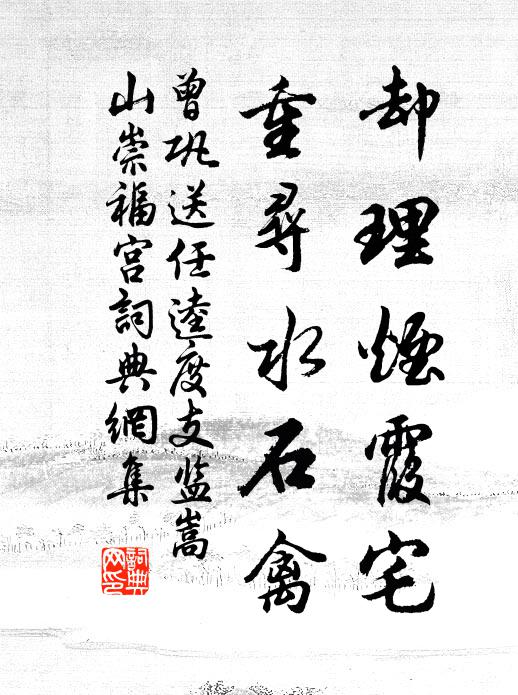 却理煙霞宅
重尋水石禽
曾巩送任逵度支监嵩
山崇福宫詞典網集
詞典
网印